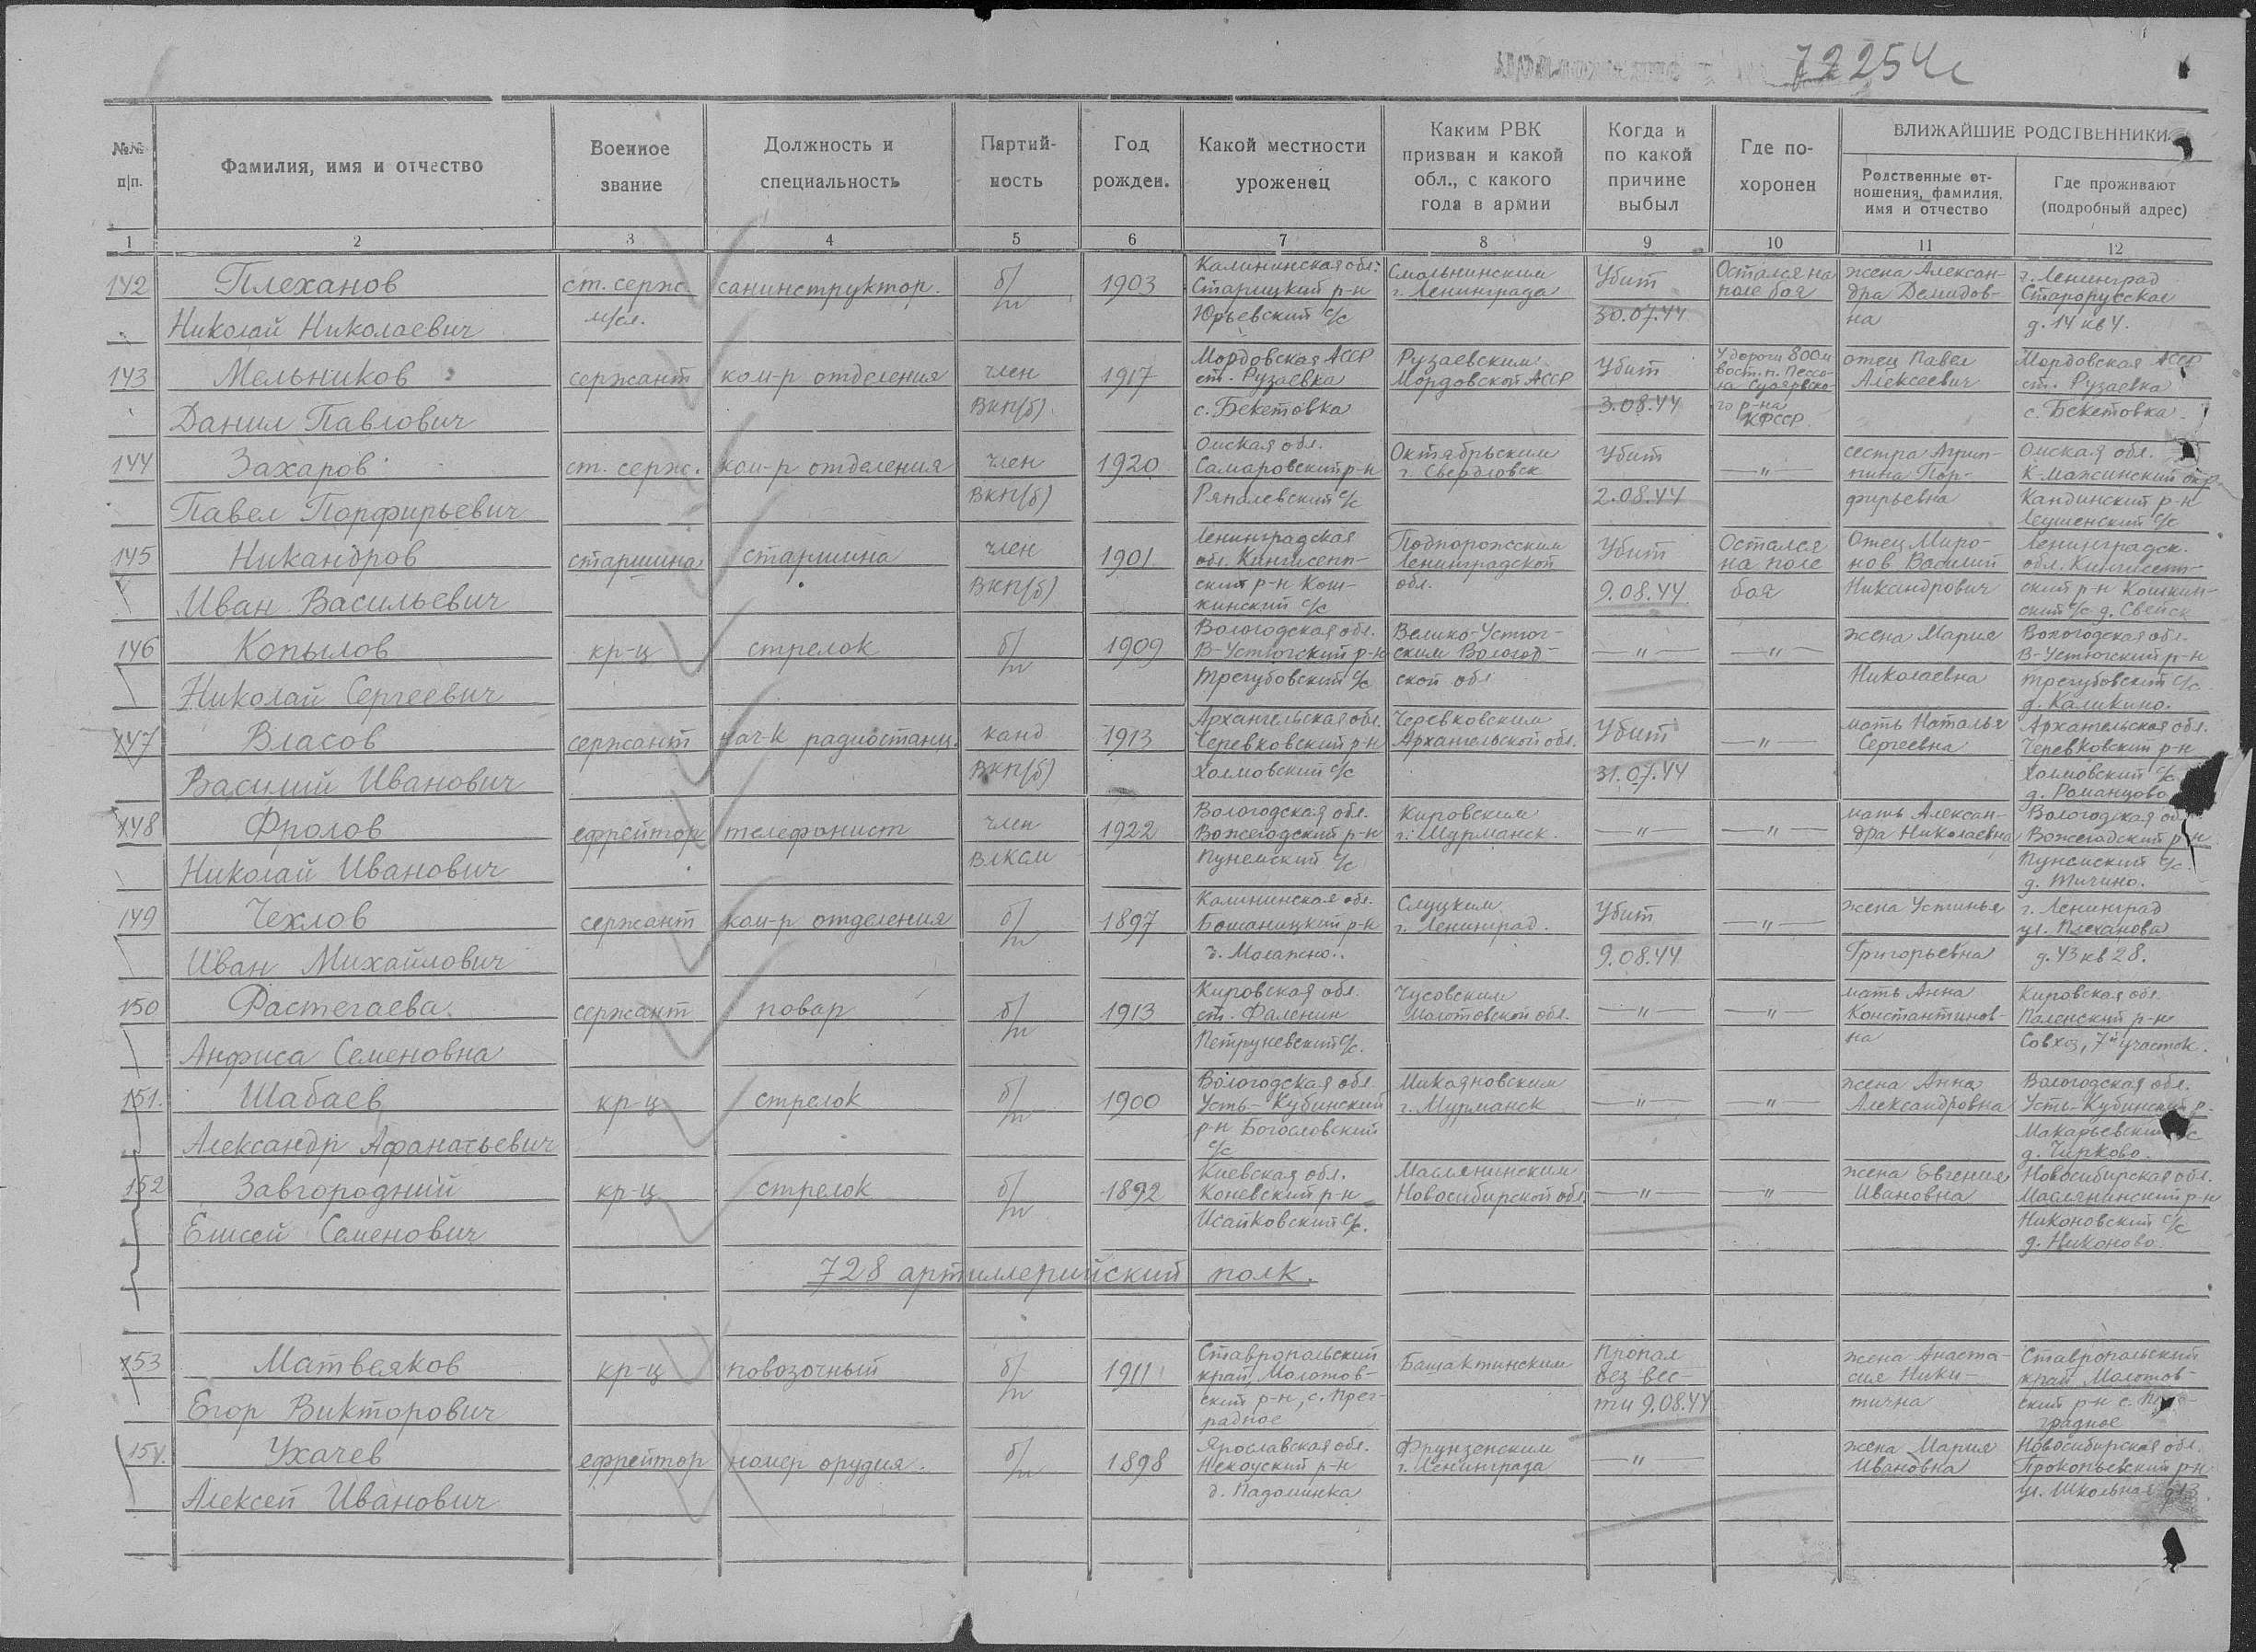 72254с
№№ п/п.
Фамилия, имя и отчество
Военное звание
Должность и специальность
Партий-ность
Год рожден.
Какой местности уроженец
Каким РВК призван и какой обл., с какого года в армии
Когда и по какой причине выбыл
Где по-хоронен
БЛИЖАЙШИЕ РОДСТВЕННИКИ
Родственные от-ношения, фамилия, имя и отчество
Где проживают (подробный адрес)
1 2 3 4 5 6 7 8 9 10 11 12
142 Плеханов ст. серж. санинструктор. б/п 1903 Калининская обл. Смольнинским Убит Остался на жена Алексан- г. Ленинград
Старицкий р-н г. Ленинграда поле боя дра Демидов- Старорусская
Николай Николаевич м/сл. Юрьевский с/с 30.07.44 на д. 14 кв 4.
143 Мельников сержант ком-р отделения член 1917 Мордовская АССР Рузаевским Убит У дороги 800м отец Павел Мордовская АССР
ст. Рузаевка Мордовской АССР вост. п. Алексеевич ст. Рузаевка
Данил Павлович ВКП(б) с. Бекетовка 3.08.44 го р-на КФССР с. Бекетовка
144 Захаров ст. серж. ком-р отделения член 1920 Омская обл. Октябрьским Убит —"— сестра Агрип- Омская обл.
Самаровский р-н г. Свердловск пина Пор-
Павел Порфирьевич ВКП(б) 2.08.44 фирьевна Кандинский р-н
Леушенский с/с
145 Никандров старшина старшина член 1901 Ленинградская Подпорожским Убит Остался Отец Миро- Ленинградск.
обл. Кингисепп- Ленинградской на поле нов Василий обл. Кингисепп-
Иван Васильевич ВКП(б) ский р-н Кош- обл. 9.08.44 боя Никандрович ский р-н Кошкин-
кинский с/с ский с/с д. Свейск
146 Копылов кр-ц стрелок б/п 1909 Вологодская обл. Велико-Устюг- —"— —"— жена Мария Вологодская обл.
В-Устюгский р-н ским Вологод- В-Устюгский р-н
Николай Сергеевич Трегубовский с/с ской обл Николаевна Трегубовский с/с
д. Каликино.
147 Власов сержант нач-к радиостанц. канд 1913 Архангельская обл. Черевковским Убит —"— мать Наталья Архангельская обл.
Черевковский р-н Архангельской обл. Сергеевна Черевковский р-н
Василий Иванович ВКП(б) Холмовский с/с 31.07.44 Холмовский с/с
д. Романцово
148 Фролов ефрейтор телефонист член 1922 Вологодская обл. Кировским —"— —"— мать Алексан- Вологодская об
Вожегодский р-н г. Мурманск. дра Николаевна Вожегодский р-н
Николай Иванович ВЛКСМ Пунемский с/с Пунемский с/с.
д. Тигино.
149 Чехлов сержант ком-р отделения б/п 1897 Калининская обл. Слуцким Убит —"— жена Устинья г. Ленинград
г. Ленинград. ул. Плеханова
Иван Михайлович 9.08.44 Григорьевна д. 43 кв 28.
150 Растегаева сержант повар б/п 1913 Кировская обл. Чусовским —"— —"— мать Анна Кировская обл.
ст. Фаленин Молотовской обл. Константинов- Фаленский р-н
Анфиса Семеновна Петруневский с/с. на Совхоз, 7й участок.
151. Шабаев кр-ц стрелок б/п 1900 Вологодская обл Микояновским —"— —"— жена Анна Вологодская обл.
Усть-Кубинский г. Мурманск Александровна Усть-Кубинский р-
Александр Афанасьевич р-н Богословский с/с Макарьевский с/с
д. Чирково.
152 Завгородний кр-ц стрелок б/п 1892 Киевская обл. Маслянинским —"— —"— жена Евгения Новосибирская обл.
Коневский р-н Новосибирской обл. Ивановна Маслянинский р-н
Елисей Семенович Исайковский с/с. Никоновский с/с
д. Никоново.
728 артиллерийский полк.
153 Матвеяков кр-ц повозочный б/п 1911 Ставропольский Башактинским Пропал жена Анаста- Ставропольский
край Молотов- без вес- сия Ники- край Молотов-
Егор Викторович ский р-н, с. Прег- ти 9.08.44 тична ский р-н с. Прег-
радное традное
154. Ухачев ефрейтор номер орудия. б/п 1898 Ярославская обл. Фрунзенским —"— жена Мария Новосибирская обл.
Некоуский р-н г. Ленинграда Ивановна Прокопьевский р-н
Алексей Иванович д. Падоминка ул. Школьная д 13